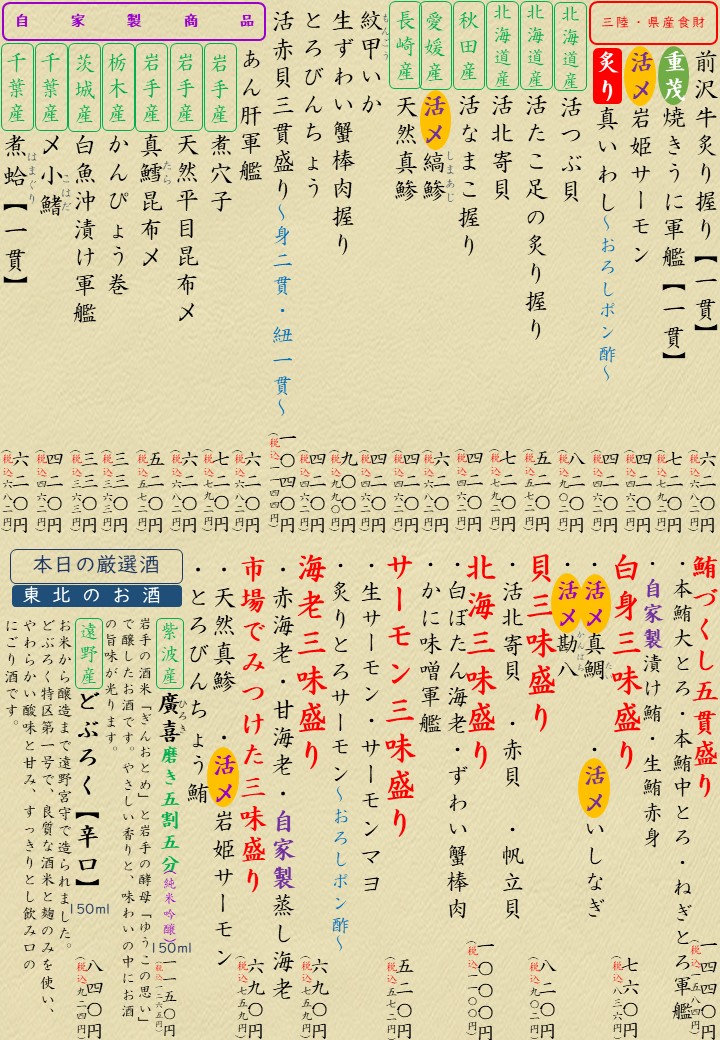 三陸・県産食財
前沢牛炙り握り【一貫】 六二〇円(税込六八二円)
重茂焼きうに軍艦【一貫】 七二〇円(税込七九二円)
活〆岩姫サーモン 四二〇円(税込四六二円)
炙り真いわし～おろしポン酢～ 四二〇円(税込四六二円)
北海道産 活つぶ貝 八二〇円(税込九〇二円)
北海道産 活たこ足の炙り握り 五二〇円(税込五七二円)
北海道産 活北寄貝 七二〇円(税込七九二円)
秋田産 活なまこ握り 四二〇円(税込四六二円)
愛媛産 活〆縞鯵 しまあじ 六二〇円(税込六八二円)
長崎産 天然真鯵 四二〇円(税込四六二円)
紋甲いか もんごう 四二〇円(税込四六二円)
生ずわい蟹棒肉握り 九〇〇円(税込九九〇円)
とろびんちょう 四二〇円(税込四六二円)
活赤貝三貫盛り～身二貫・紐一貫～ 一〇四〇円(税込一一四四円)
自家製商品
あん肝軍艦 六二〇円(税込六八二円)
岩手産 煮穴子 七二〇円(税込七九二円)
岩手産 天然平目昆布〆 六二〇円(税込六八二円)
岩手産 真鱈昆布〆 たら 五二〇円(税込五七二円)
栃木産 かんぴょう巻 三三〇円(税込三六三円)
茨城産 白魚沖漬け軍艦 三三〇円(税込三六三円)
千葉産 〆小鰭 こはだ 四二〇円(税込四六二円)
千葉産 煮蛤【一貫】 はまぐり 六二〇円(税込六八二円)
鮪づくし五貫盛り 一四四〇円
・本鮪大とろ・本鮪中とろ・ねぎとろ軍艦
・自家製漬け鮪・生鮪赤身
白身三味盛り 七六〇円(税込八三六円)
・活〆真鯛 たい ・活〆いしなぎ
・活〆勘八 かんぱち
貝三味盛り 八二〇円(税込九〇二円)
・活北寄貝 ・赤貝 ・帆立貝
北海三味盛り 一〇〇〇円(税込一一〇〇円)
・白ぼたん海老・ずわい蟹棒肉
・かに味噌軍艦
サーモン三味盛り 五二〇円(税込五七二円)
・生サーモン・サーモンマヨ
・炙りとろサーモン～おろしポン酢～
海老三味盛り 六九〇円(税込七五九円)
・赤海老・甘海老・自家製蒸し海老
市場でみつけた三味盛り 六九〇円(税込七五九円)
・天然真鯵 ・活〆岩姫サーモン
・とろびんちょう鮪
本日の厳選酒
東北のお酒
紫波産 廣喜 ひろき 磨き五割五分(純米吟醸) 150ml 一一五〇円(税込一二六五円)
岩手の酒米「ぎんおとめ」と岩手の酵母「ゆうこの思い」
で醸したお酒です。やさしい香りと、味わいの中にお酒
の旨味が光ります。
遠野産 どぶろく【辛口】 150ml 八四〇円(税込九二四円)
お米から醸造まで遠野宮守で造られました。
どぶろく特区第一号で、良質な酒米と麹のみを使い、
やわらかい酸味と甘み、すっきりとし飲み口の
にごり酒です。